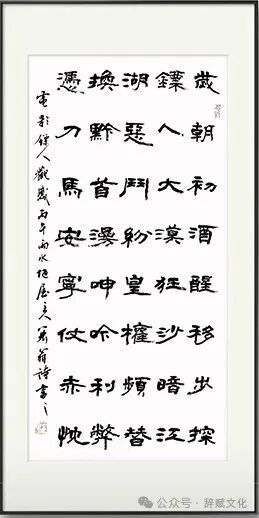 歲朝初酒醒移步探
鏢人大漠狂沙暗江
湖惡鬥紛皇權頻替
換黔首漫呻吟利弊
憑刀馬安寧仗赤忱
電影鏢人觀感丙午雨水翁詩書之
公众号·辞赋文化